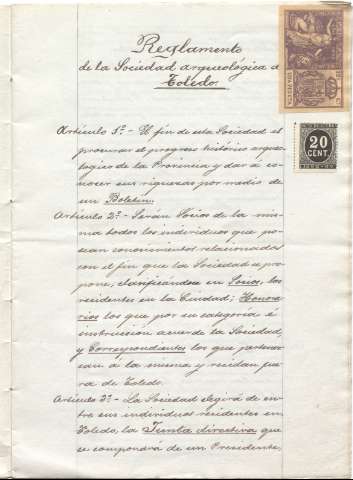 Reglamento
de la Sociedad arqueológica de
Toledo.
Artículo 1º.- El fin de esta Sociedad es
procurar el progreso histórico arqueo-
lógico de la Provincia y dar á co-
nocer sus riquezas por medio de
un Boletín.
Artículo 2º.- Serán Socios de la mis-
ma todos los individuos que po-
sean conocimientos relacionados
con el fin que la Sociedad se pro-
pone, clasificándose en Socios, los
residentes en la Ciudad; Honora-
rios los que por su categoría é
instrucción acuerde la Sociedad
y Correspondientes los que pertenez-
can á la misma y residan fue-
ra de Toledo.
Artículo 3º.- La Sociedad elegirá de en-
tre sus individuos residentes en
Toledo, la Junta directiva que
se compondrá de un Presidente,
20
CENT.